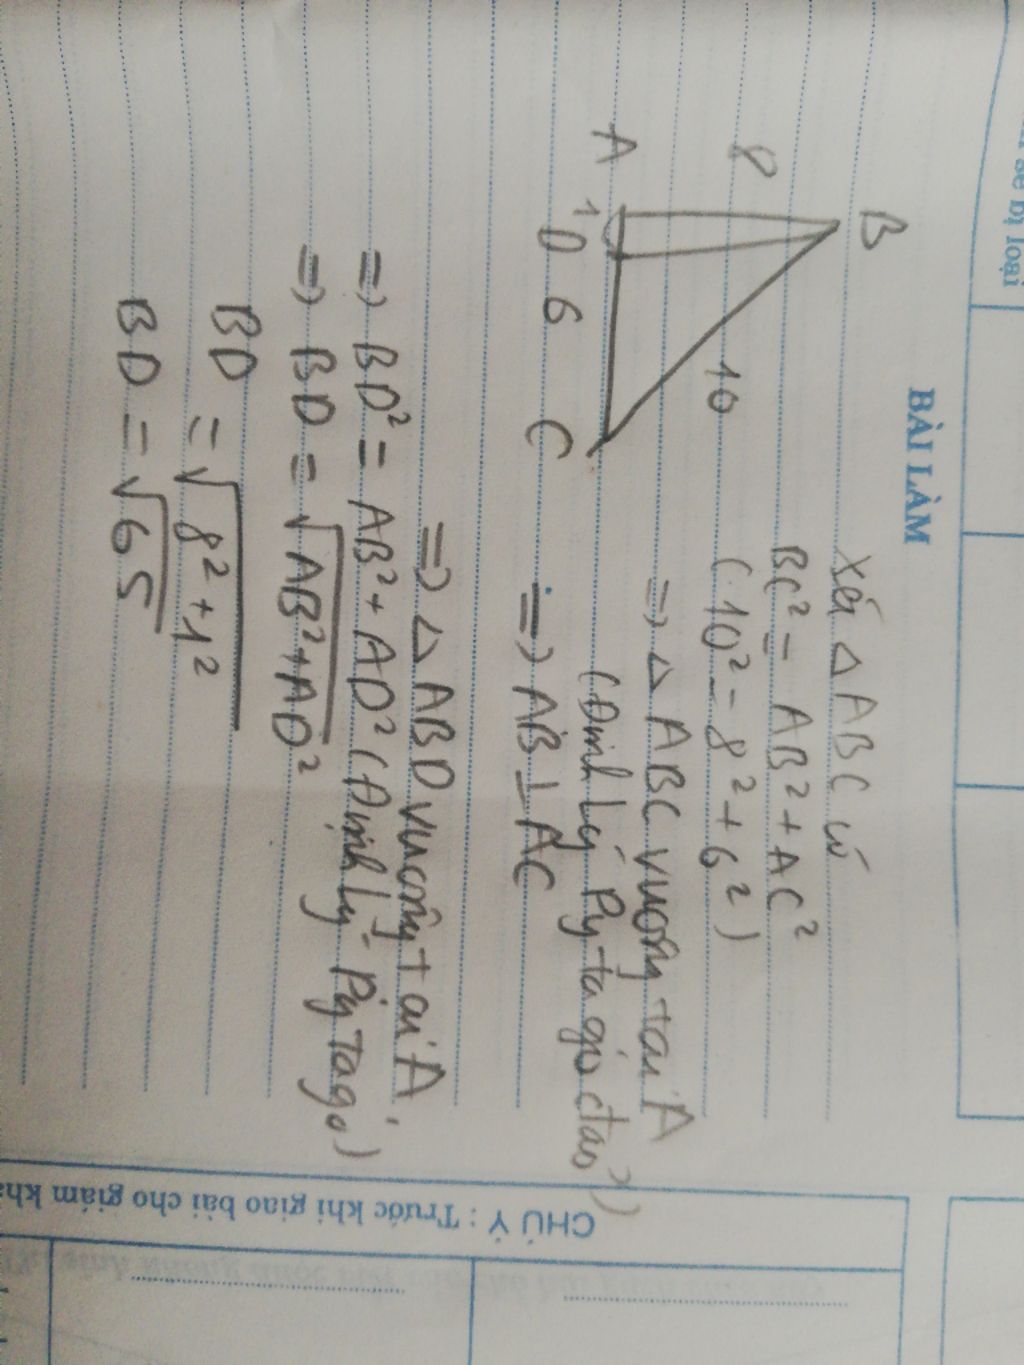 sẽ bị loại
BÀI LÀM
B
8
10
A
1
D
6
C
Xét △ ABC có
BC² = AB² + AC²
(10² = 8² + 6²)
=> △ ABC vuông tại A
(Định lý Pytago đảo)
=> AB ⊥ AC
=> △ ABD vuông tại A,
=> BD² = AB² + AD² (Định lý Pytago)
=> BD = √AB² + AD²
BD = √8² + 1²
BD = √65
CHÚ Ý : Trước khi giao bài cho giám